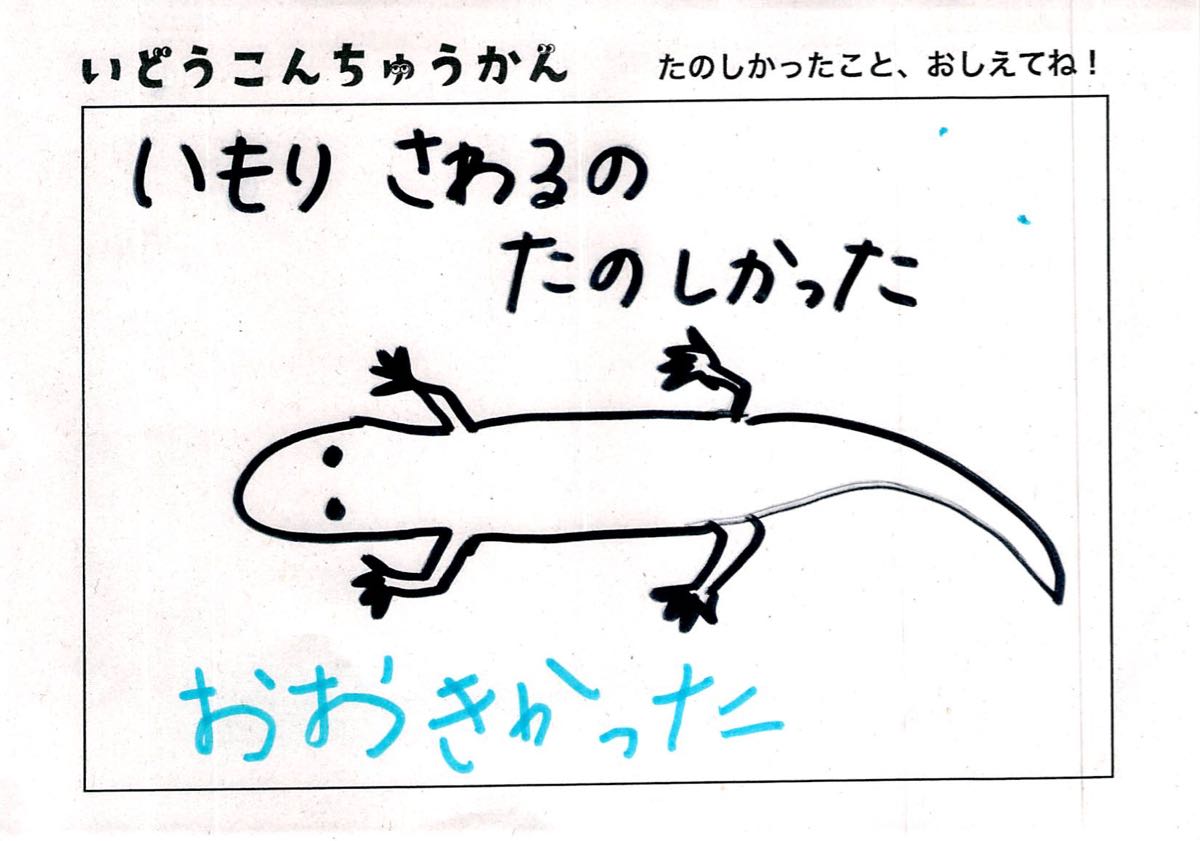 いどうこんちゅうかん
たのしかったこと、おしえてね！
いもり さわるの
たのしかった
おおきかった